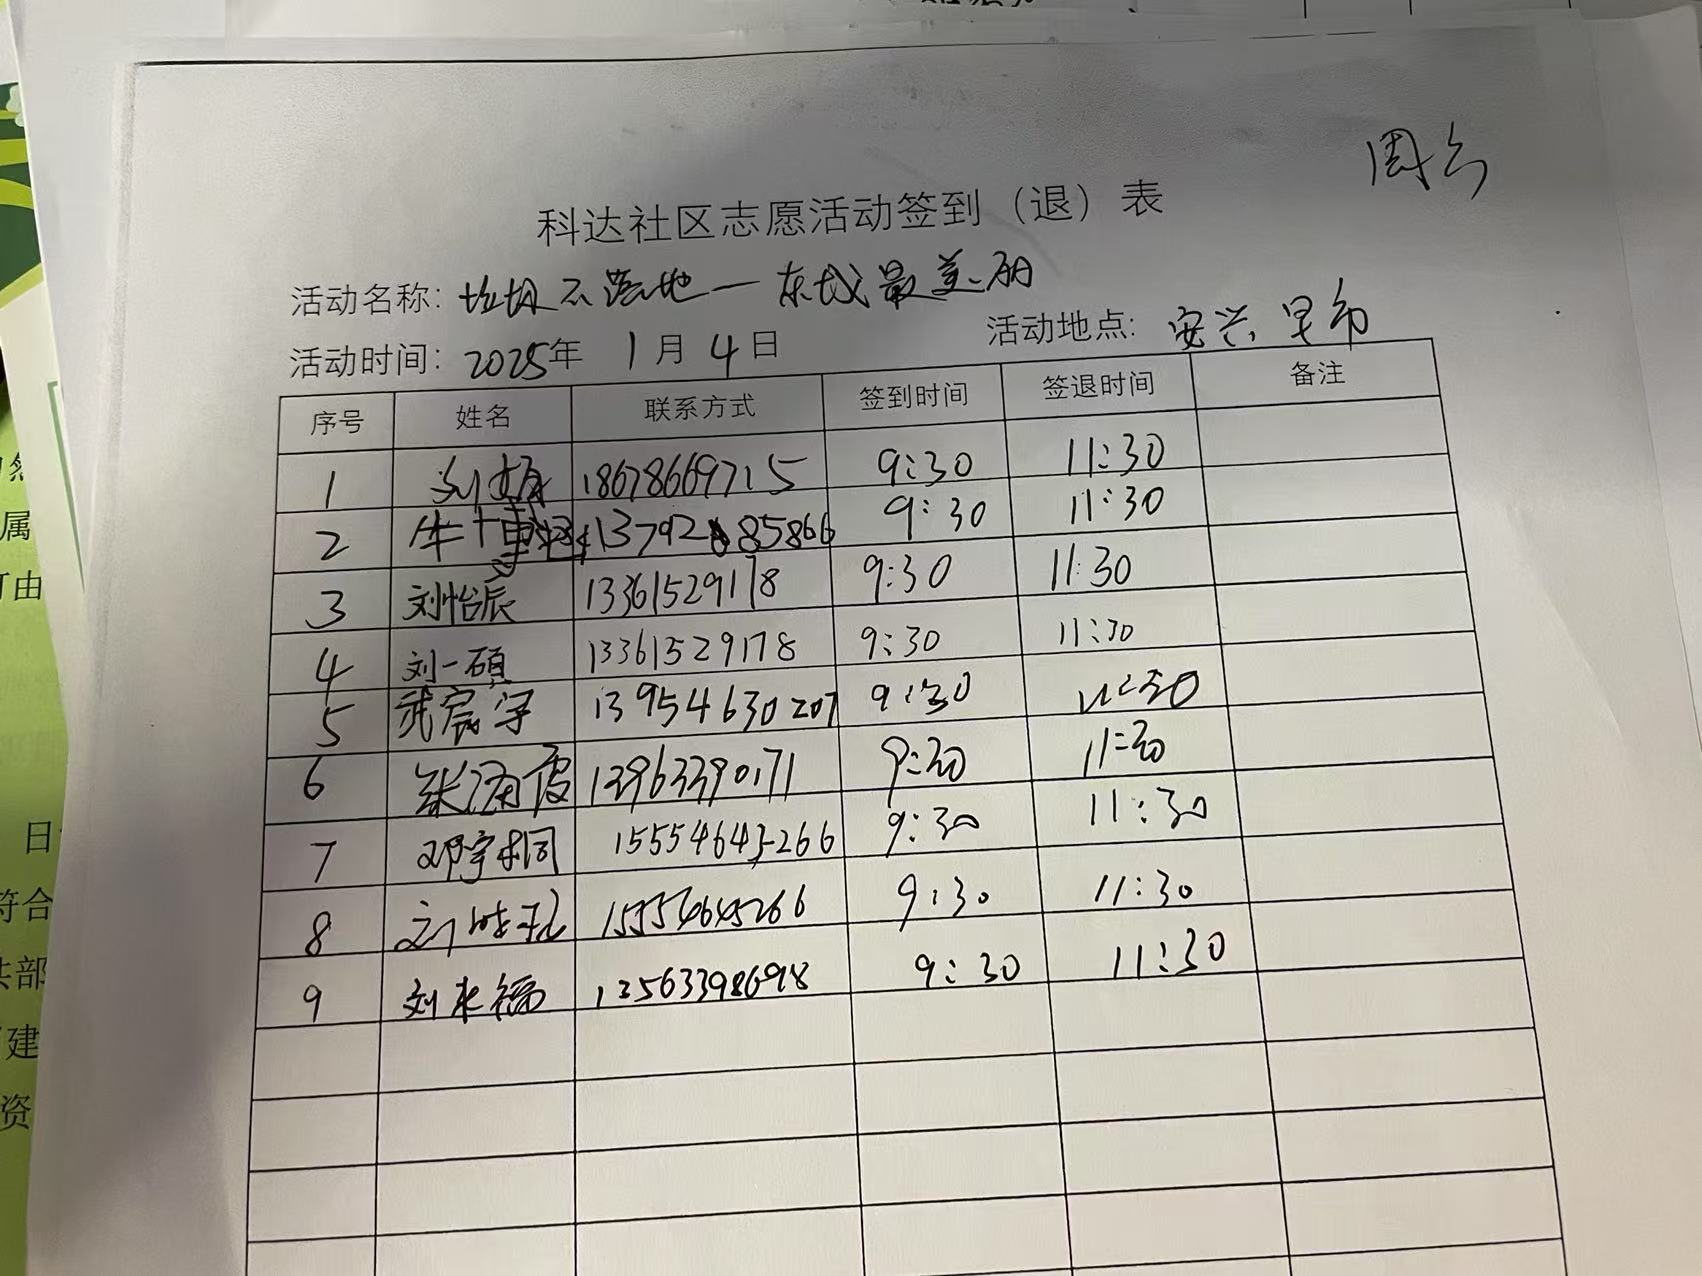 周六
科达社区志愿活动签到（退）表
活动名称：垃圾不落地一东城最美丽
活动时间：2025年 1月4日 活动地点：安兴早市
序号 姓名 联系方式 签到时间 签退时间 备注
1 刘 18678669715 9:30 11:30
2 牛博 13792885866 9:30 11:30
3 刘怡辰 13361529178 9:30 11:30
4 刘一硕 13361529178 9:30 11:30
5 武宸宇 13954630207 9:30 11:30
6 张海霞 13963390171 9:30 11:30
7 邓宇桐 15554645266 9:30 11:30
8 刘 15554645266 9:30 11:30
9 刘永福 13563398698 9:30 11:30
属
可由
日
符合
共部
建
资